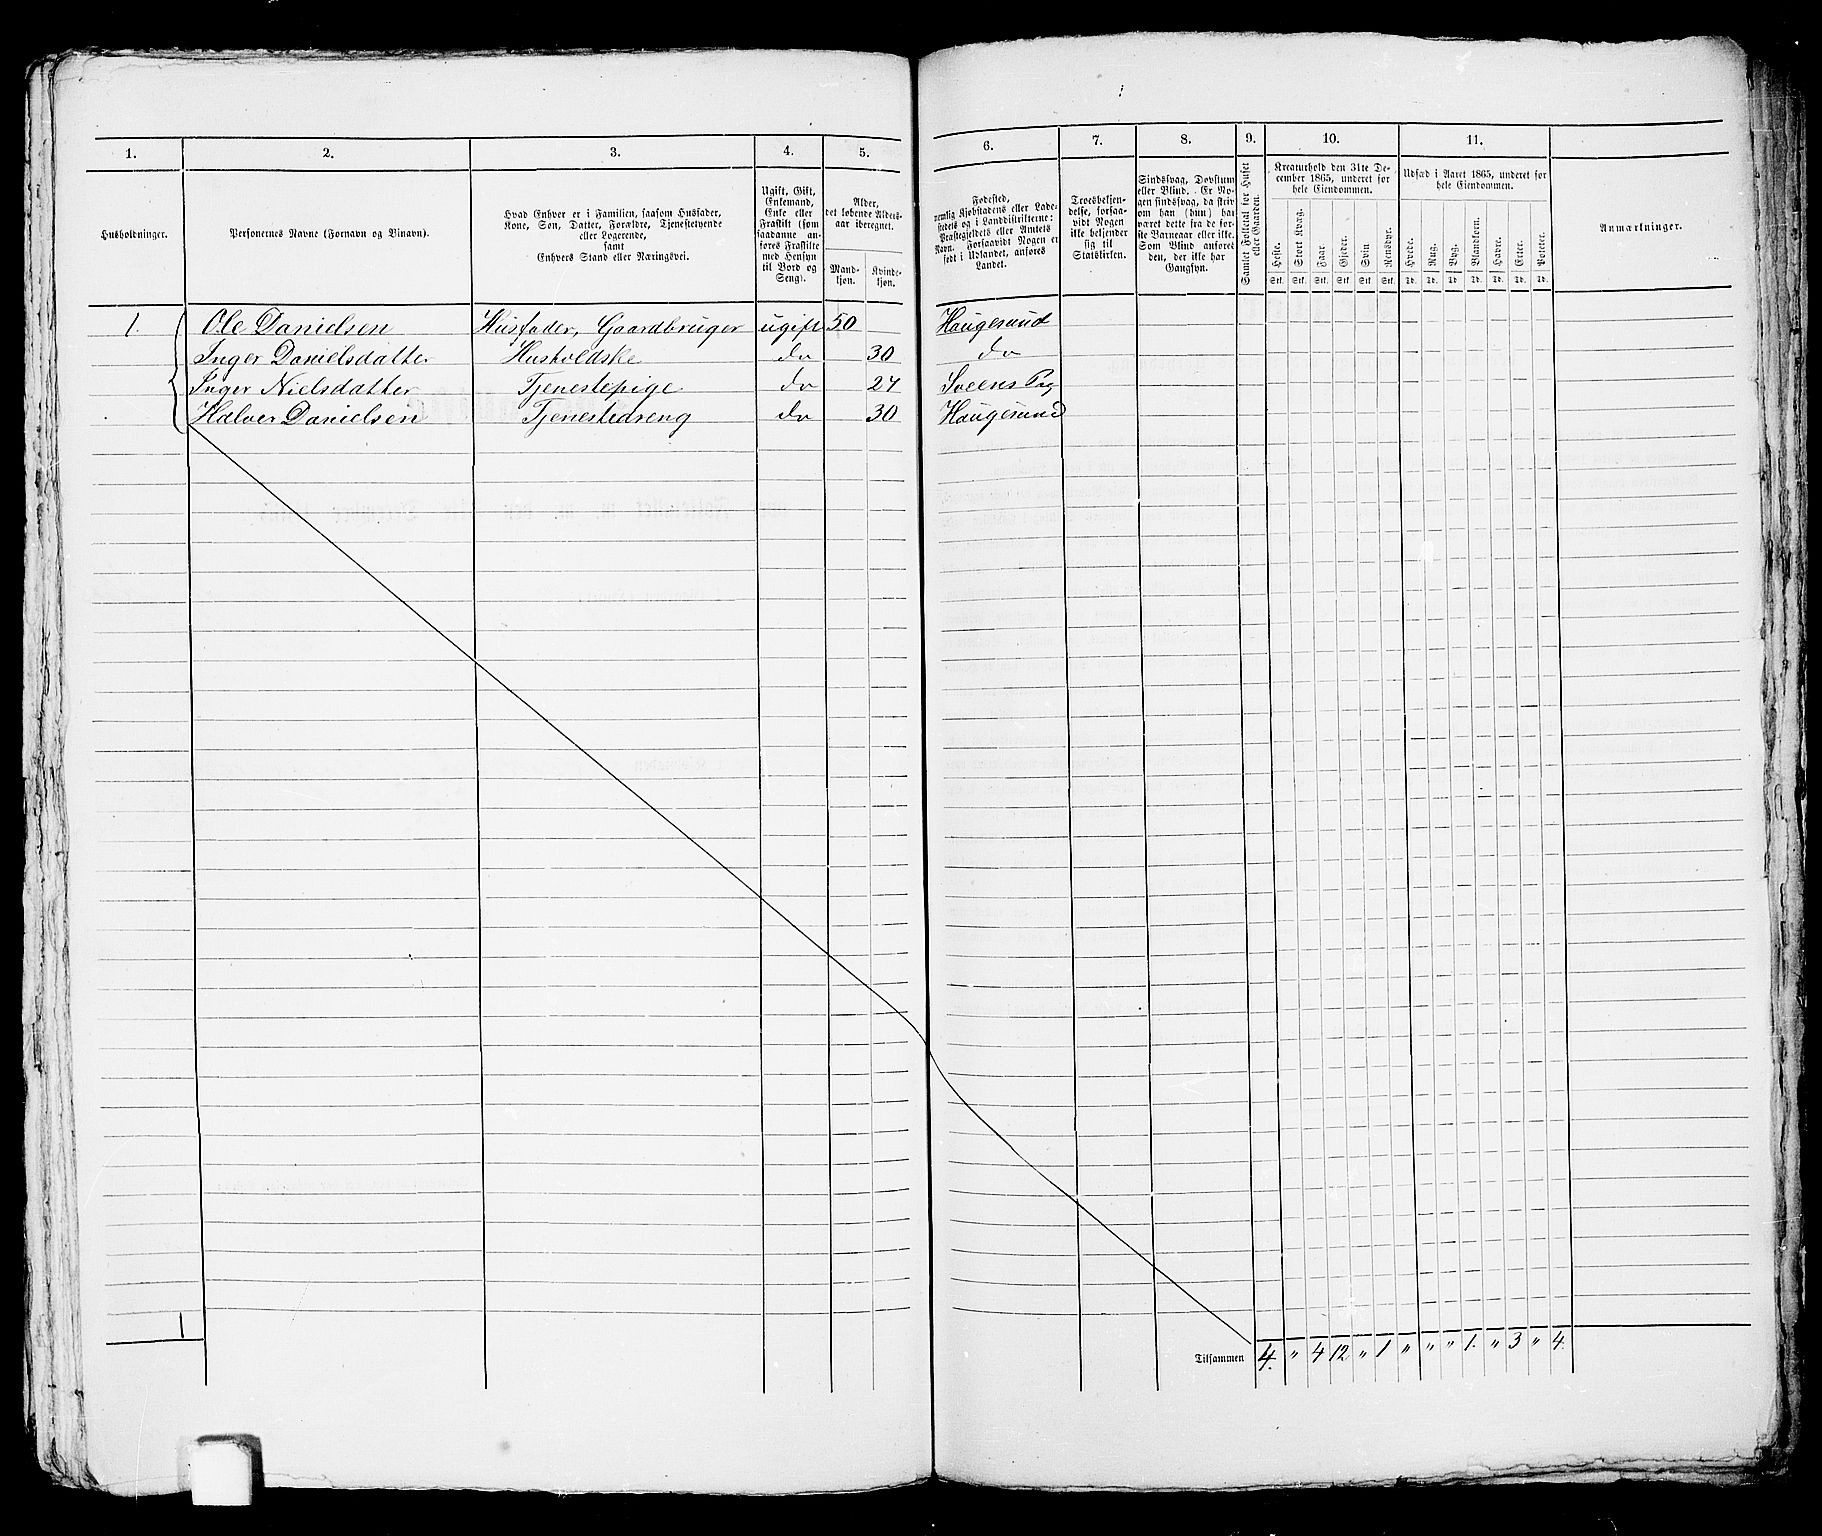 1. 2. 3. 4. 5. 6. 7. 8. 9. 10. 11.
Husholdninger.
Personernes Navne (Fornavn og Binavn).
Hvad Enhver er i Familien, saasom Husfader,
Kone, Søn, Datter, Forældre, Tjenestetyende
eller Logerende,
samt
Enhvers Stand eller Næringsvei.
Ugift, Gift,
Enkemand,
Enke eller
Fraskilt (som
saadanne an-
føres Fraskilte
med Hensyn
til Bord og
Seng).
Alder,
det løbende Alders-
aar iberegnet.
Mand-
kjøn.
Kvinde-
kjøn.
Fødested,
nemlig Kjøbstadens eller Lade-
stedets og i Landdistrikterne:
Præstegjeldets eller Amtets
Navn. Forsaavidt Nogen er
født i Udlandet, anføres
Landet.
Troesbekjen-
delse, forsaa-
vidt Nogen
ikke bekjender
sig til
Statskirken.
Sindssvag, Døvstum
eller Blind. Er No-
gen sindssvag, da skriv
om han (hun) har
været dette fra de før-
ste Barneaar eller ikke.
Som Blind anføres
den, der ikke har
Gangsyn.
Samlet Folketal for Huset
eller Gaarden.
Kreaturhold den 31te De-
cember 1865, underet for
hele Eiendommen.
Heste. Stort Kvæg. Faar. Gjeder. Svin Rensdyr.
Stk. Stk. Stk. Stk. Stk. Stk.
Udsæd i Aaret 1865, underet for
hele Eiendommen.
Hvede. Rug. Byg. Blandkorn. Havre. Erter. Poteter.
Td. Td. Td. Td. Td. Td. Td.
Anmærkninger.
1. Ole Danielsen Husfader, Gaardbruger ugift 50 Haugesund
Inger Danielsdatter Husholdske do 30 do
Inger Nielsdatter Tjenestepige do 27 Sveens Pg
Halver Danielsen Tjenestedreng do 30 Haugesund
1
Tilsammen 4. " 4 12 " 1 " " " 1. " 3 " 4.